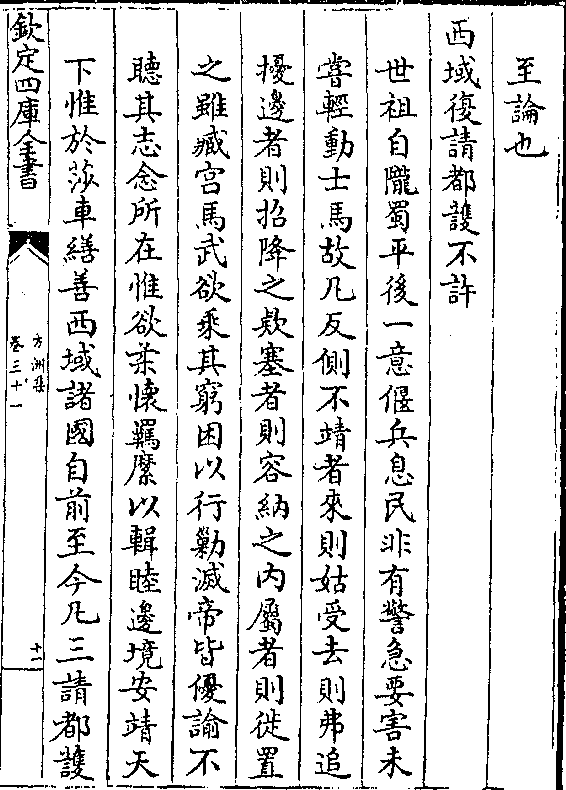 至論也
西域復請都䕶不許
世祖自隴蜀平後一意偃兵息民非有警急要害未
嘗輕動士馬故凡反側不靖者來則姑受去則弗追
擾邊者則招降之欵塞者則容納之内屬者則徙置
之雖臧宫馬武欲乘其窮困以行勦滅帝皆優諭不
聽其志念所在惟欲柔懷羈縻以輯睦邊境安靖天
下惟於莎車繕善西域諸國自前至今凡三請都䕶
欽定四庫全書
方洲集
卷三十一
十一